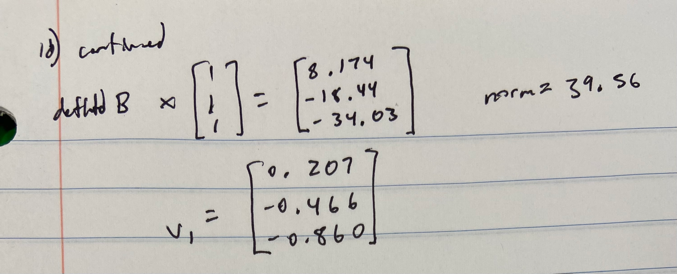 1d) continued
deflated B × [1 1 1] = [8.174 -18.44 -34.03] norm = 39.56
v₁ = [0.207 -0.466 -0.860]